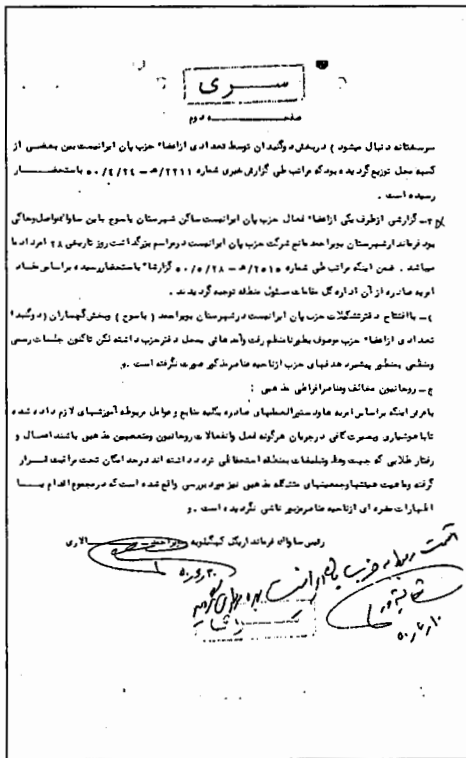 ســری
صفحـــــــه دوم
سرسختانه دنبال میشود ) دربخش دوگنبدان توسط تعدادی ازاعضاء حزب پان ایرانیست بین بعضی از
کسبه محل توزیع گردیده بود که مراتب طی گزارش خبری شماره ۲۲۱۱/ه‍ - ۵۰/۴/۲۴ باستحضــار
رسیده است .
۳- گزارشی ازطرف یکی ازاعضاء فعال حزب پان ایرانیست ساکن شهرستان یاسوج باین ساواک واصل وحاکی
بود فرماندارشهرستان بویراحمد مانع شرکت حزب پان ایرانیست درمراسم بزرگداشت روز تاریخی ۲۸ امرداد ماه
میباشد . ضمن اینکه مراتب طی شماره ۲۵۱۵/ه‍ - ۵۰/۵/۲۸ گزارشا" باستحضاررسیده براساس مفاد
اوامریه صادره از آن اداره کل مقامات مسئول منطقه توجیه گردیدند .
۴- باافتتاح دفترتشکیلات حزب پان ایرانیست درشهرستان بویراحمد ( یاسوج ) وبخش گچساران ( دوگنبدان )
تعدادی ازاعضاء حزب موصوف بطورنامنظم رفت وآمدهائی بمحل دفترحزب داشته لکن تاکنون جلسات رسمی
ومنظمی بمنظور پیشبرد هدفهای حزب ازناحیه عناصرمذکور صورت نگرفته است . و
ج- روحانیون مخالف وعناصرافراطی مذهبی :
باعرض اینکه براساس اوامریه ها ودستورالعملهای صادره بکلیه منابع وعوامل مربوطه آموزشهای لازم داده شده
تاباهوشیاری وبصیرت کافی درجریان هرگونه فعل وانفعالات روحانیون ومتعصبین مذهبی باشند اعمال و
رفتار طلابی که جهت وعظ وتبلیغات بمنطقه استحفاظی تردد داشته اند درحد امکان تحت مراقبت قــرار
گرفته وماهیت هیئتها وجمعیتهای متشکله مذهبی نیز مورد بررسی واقع شده است که درمجموع اقدام یــا
اظهارات مضره ای ازناحیه عناصرمزبور ناشی نگردیده است . و
رئیس ساواک فرمانداریکل کهگیلویه وبویراحمد - الاری
۵۰٫۶٫۳۰
قسمت مربوط به حزب پان ایرانیست بهره برداری گردید
۵۰٫۷٫۱۰